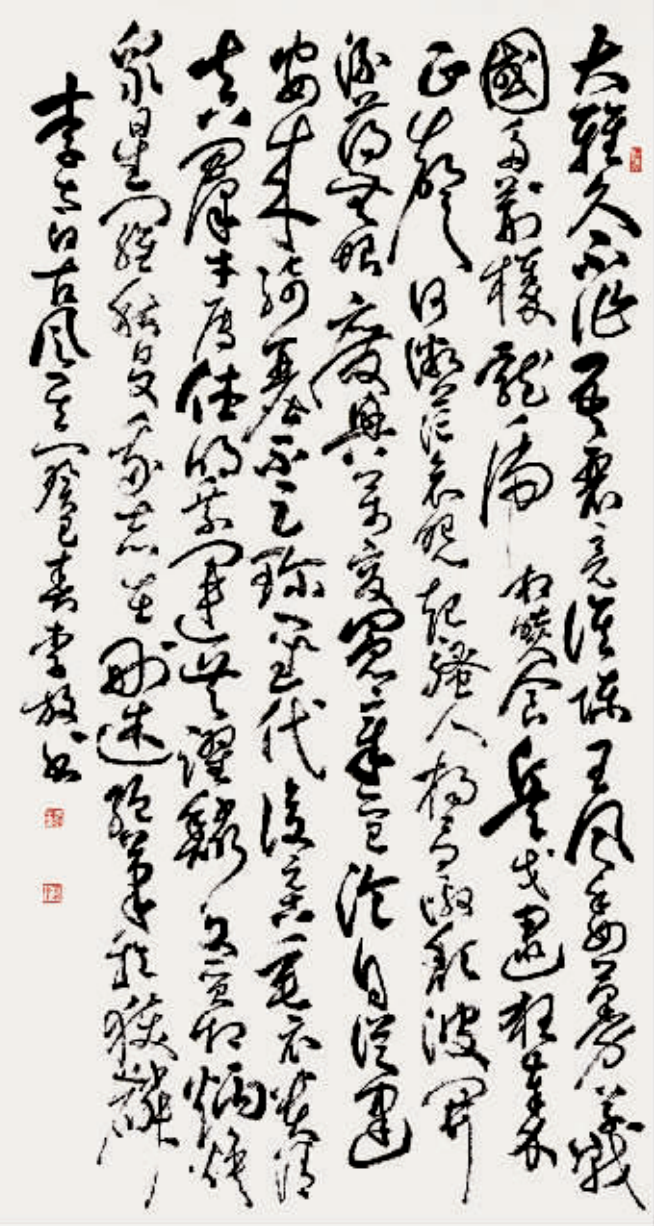 大雅久不作吾衰竟誰陳王風委蔓草戰
國多荊榛龍虎相啖食兵戈逮狂秦
正聲何微茫哀怨起騷人揚馬激頹波開
流蕩無垠廢興萬變憲章淪自從建
安來綺麗不足珍聖代復元古垂衣貴清
真群才屬休明乘運共躍鱗文質相炳煥
眾星羅秋旻我志在刪述絕筆於獲麟
李太白古風其一癸巳春李放書